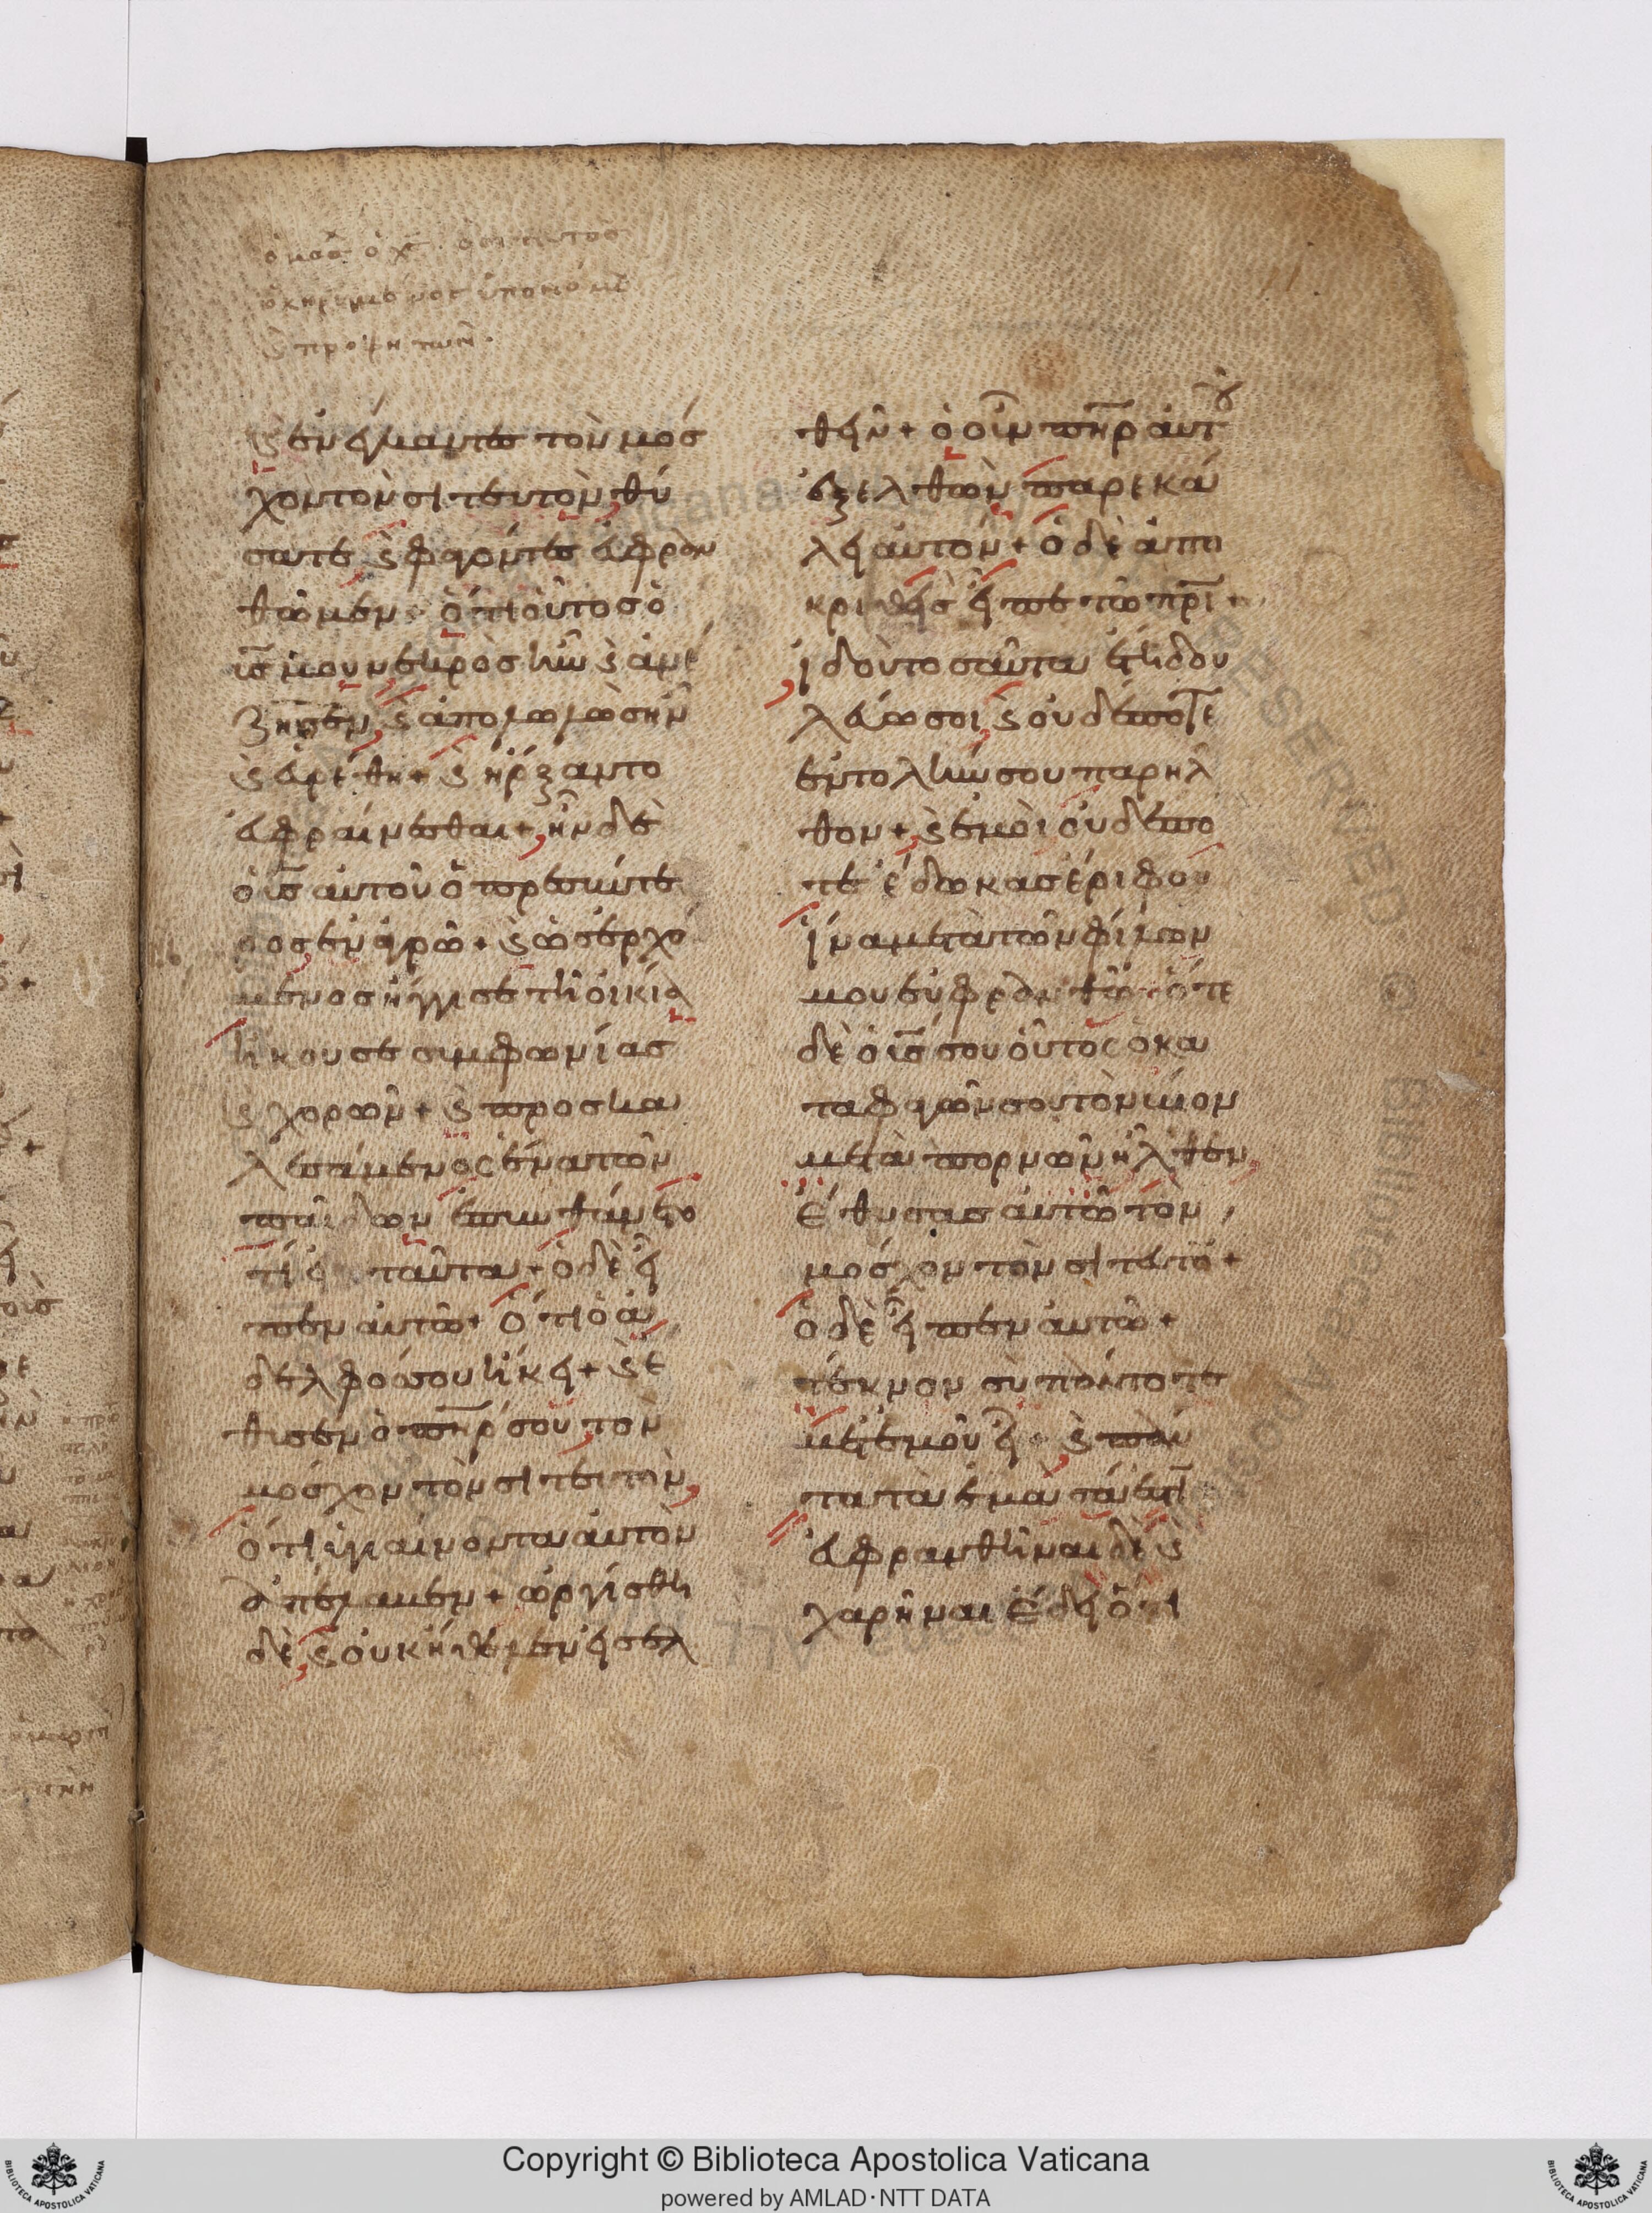 ὁ μόσχος ὁ χς ὁ σιτευτὸς
ὁ κηρυμένος ὑπὸ νόμου
ϛ προφητῶν.
ϛ ἐνέγκαντες τὸν μόσ
χον τὸν σιτευτὸν θύ
σατε, ϛ φαγόντες εὐφραν
θῶμεν· ὅτι οὗτος ὁ
υἱς μου νεκρὸς ἦν ϛ ἀνέ
ζησεν, ϛ ἀπολωλὼς ἦν
ϛ εὑρέθη + ϛ ἤρξαντο
εὐφραίνεσθαι + ἦν δὲ
ὁ υἱς αὐτοῦ ὁ πρεσβύτε
ρος ἐν ἀγρῶ + ϛ ὡς ἐρχό
μενος ἤγγισε τῆ οἰκία
ἤκουσε συμφωνίας
ϛ χορῶν + ϛ προσκα
λεσάμενος ἕνα τῶν
παίδων ἐπυνθάνετο
τί εἴη ταῦτα + ὁ δὲ εἶ
πεν αὐτῶ + ὅτι ὁ ἀ
δελφός σου ἥκει + ϛ ἔ
θυσεν ὁ πηρ σου τὸν
μόσχον τὸν σιτευτὸν,
ὅτι ὑγιαίνοντα αὐτὸν
ἀπέλαβεν + ὠργίσθη
δὲ, ϛ οὐκ ἤθελεν εἰσελ
θεῖν + ὁ οὖν πηρ αὐτοῦ
ἐξελθὼν παρεκά
λει αὐτόν + ὁ δὲ ἀπο
κριθεὶς εἶπε τῶ πρι +
ἰδοὺ τοσαῦτα ἔτη δου
λεύω σοι, ϛ οὐδέποτε
ἐντολήν σου παρῆλ
θον + ϛ ἐμοὶ οὐδέπο
τε ἔδωκας ἔριφον
ἵνα μετὰ τῶν φίλων
μου εὐφρανθῶ + ὅτε
δὲ ὁ υἱς σου οὗτος ὁ κα
ταφαγών σου τὸν βίον
μετὰ πορνῶν ἦλθεν,
ἔθυσας αὐτῶ τὸν
μόσχον τὸν σιτευτό +
ὁ δὲ εἶπεν αὐτῶ +
τέκνον σὺ πάντοτε
μετ' ἐμοῦ εἶ + ϛ πάν
τα τὰ ἐμὰ σά ἐστι
εὐφρανθῆναι δὲ ϛ
χαρῆναι ἔδει ὅτι
Copyright © Biblioteca Apostolica Vaticana
powered by AMLAD·NTT DATA